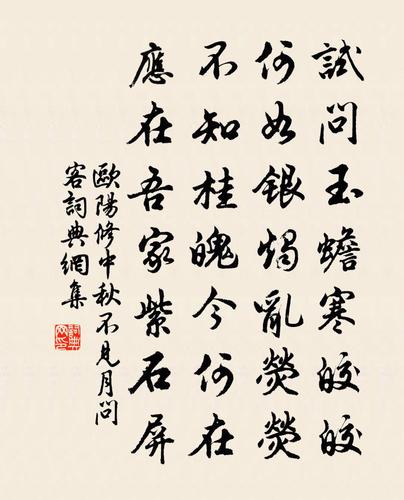 試問玉蟾寒皎皎
何如銀燭亂熒熒
不知桂魄今何在
應在吾家紫石屏
歐陽修中秋不見月問
客詞典網集